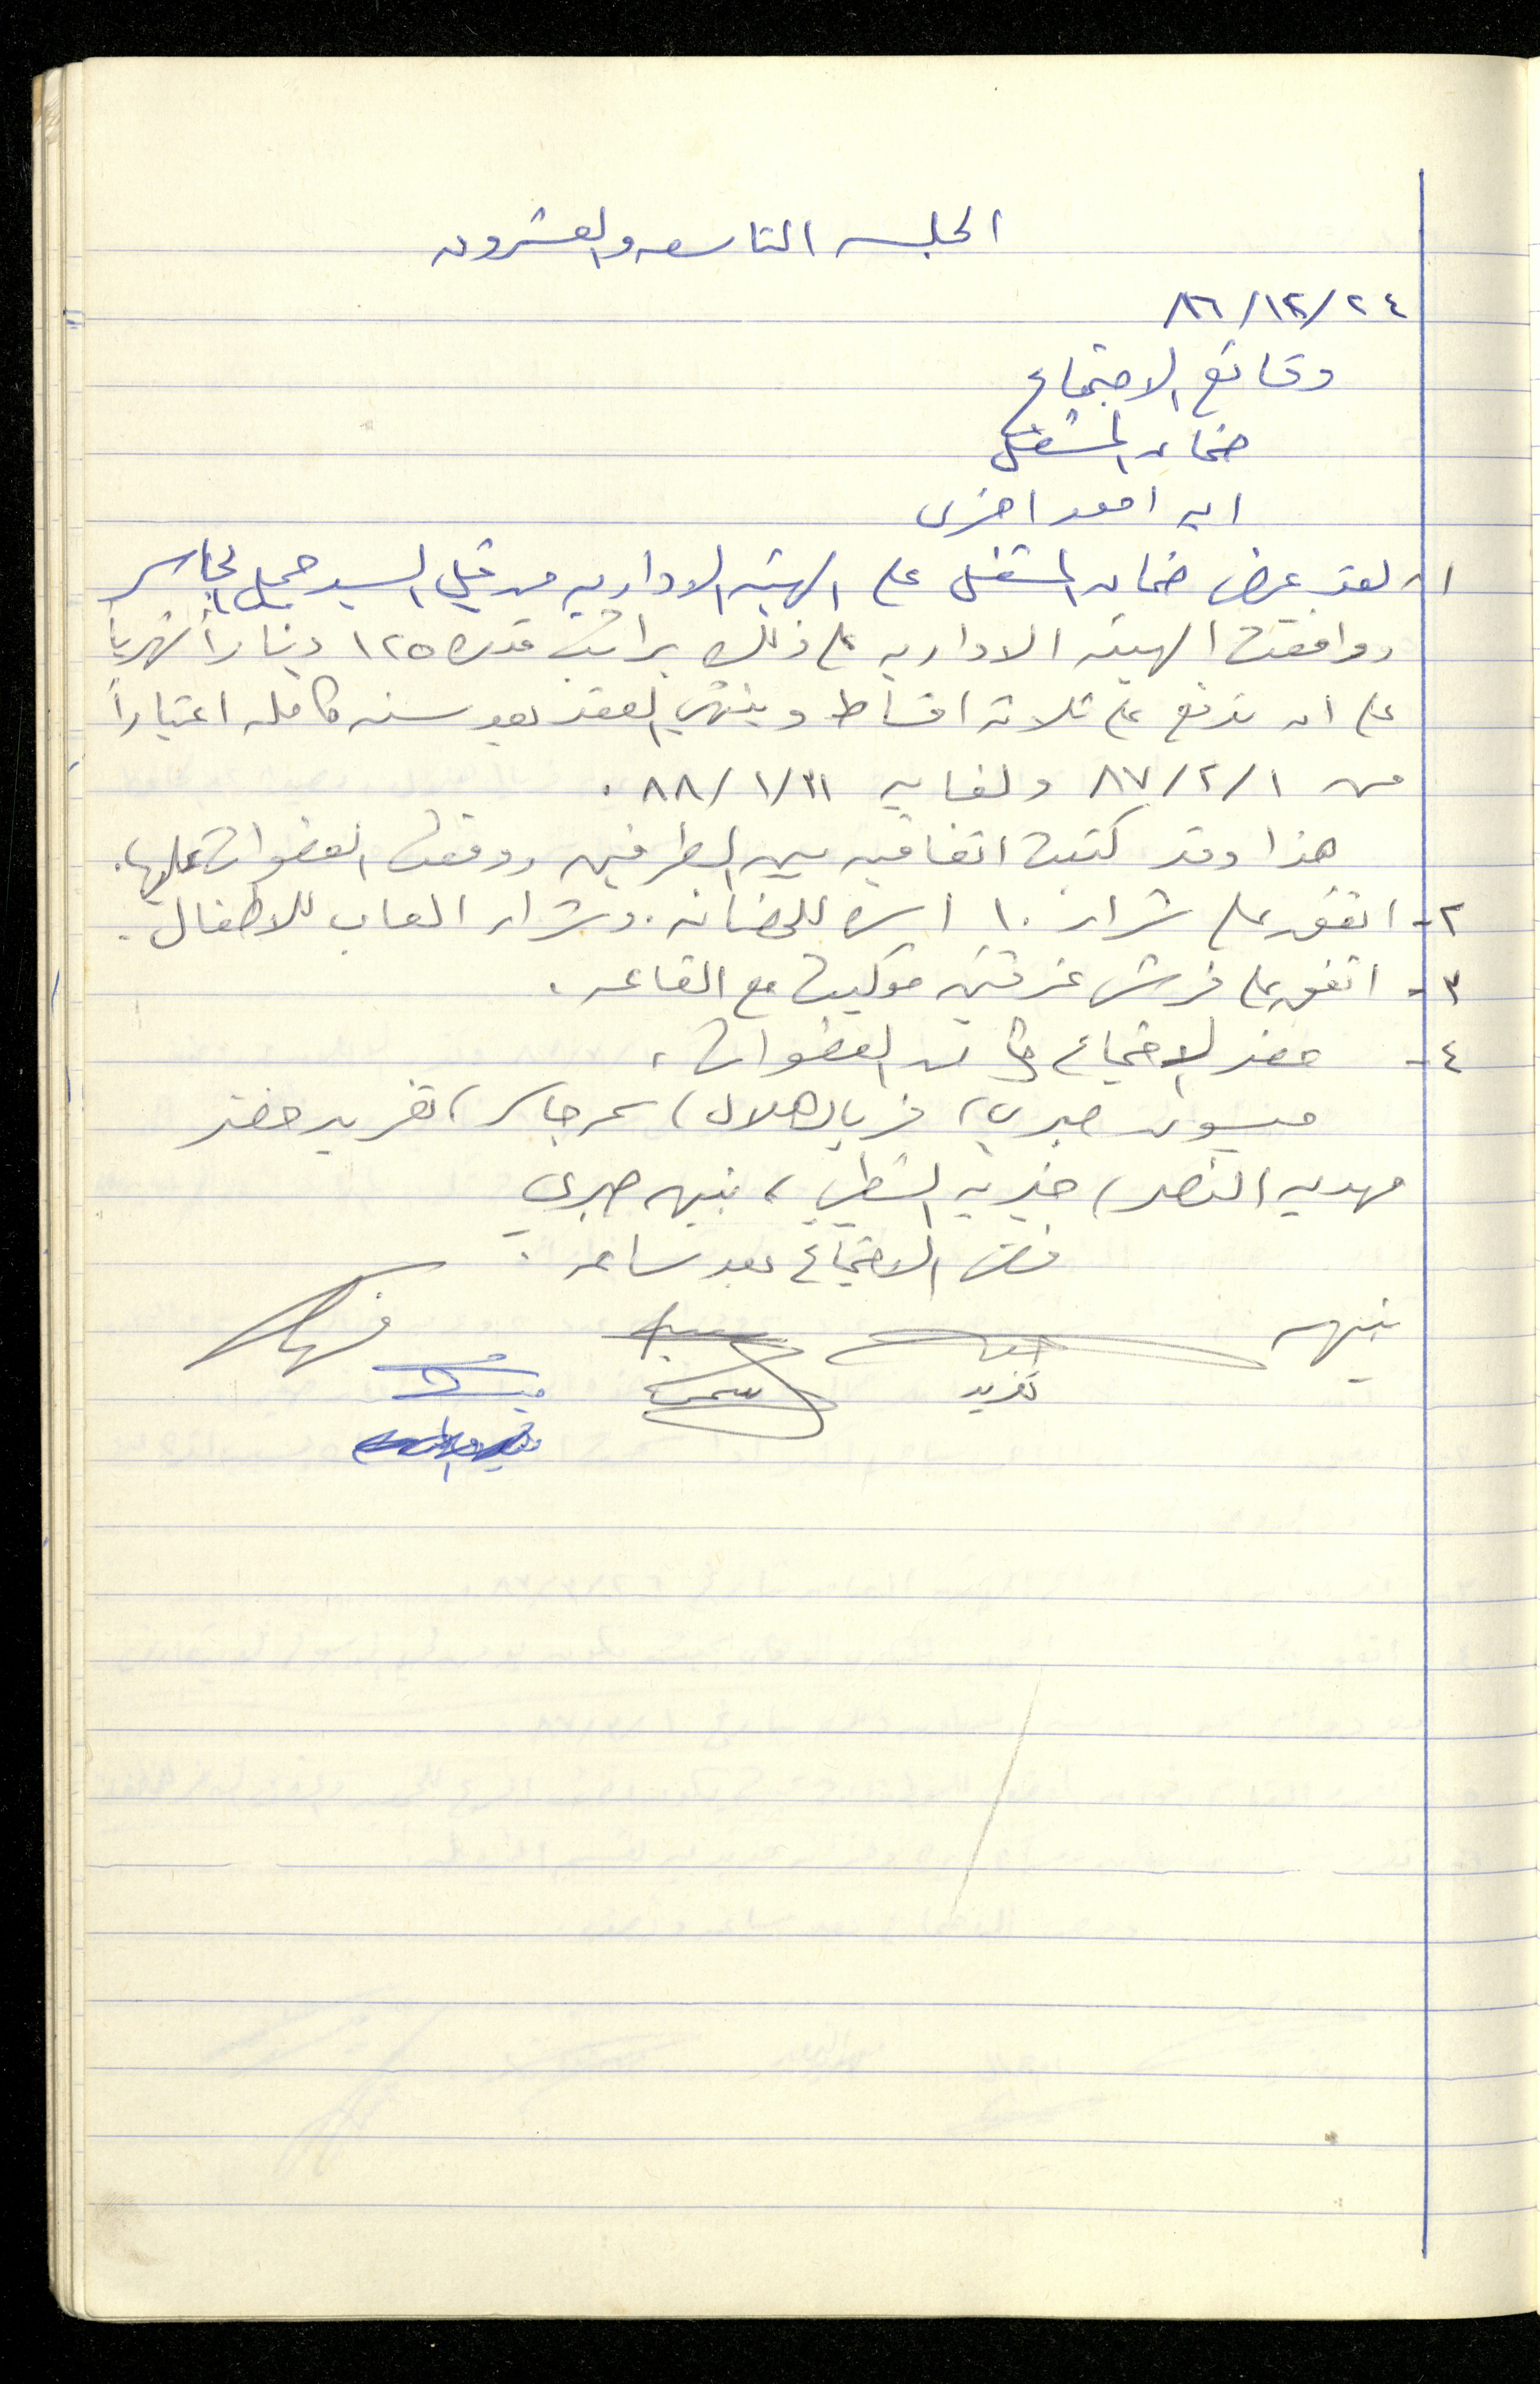 الجلسه التاسعه والعشرون
٢٤/١٢/٨٦
وقائع الاجتماع
ضمان المشغل
ايه امور اخرى
١- لقد عرض ضمان المشغل على الهيئه الاداريه من قبل السيد جميل الجاسر
ووافقت الهيئه الاداريه على ذلك براتب قدره ١٢٥ ديناراً شهرياً
على ان تدفع على ثلاثة اقساط وينتهي العقد بعد سنه كامله اعتباراً
من ٨٧/٢/١ ولغايه ٨٨/١/٣١ .
هذا وقد كتبت اتفاقيه بين الطرفين ووقعت العضوات عليها.
٢- اتفق على شراء ١٠ اسره للحضانه . وشراء العاب للاطفال .
٣- اتفق على فرش غرفتين موكيت مع القاعه .
٤- حضر الاجتماع من العضوات ،
ميسون صبري ، فريال هلال ، سمر جاسر ، تغريد خضر
مهديه النصر ، خيريه الشطي ، نبيهه صبري
فض الاجتماع بعد ساعه .
نبيهه
تغريد
سمر